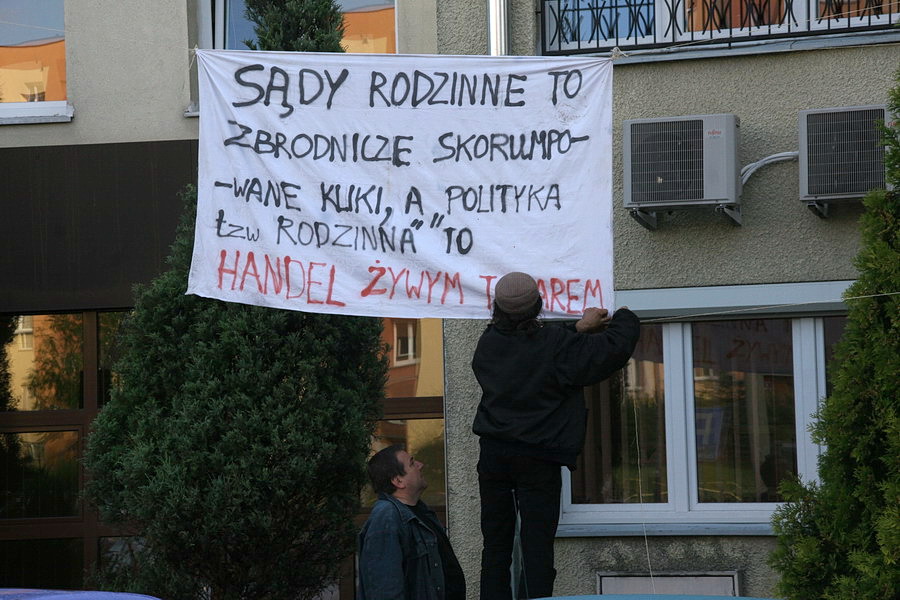 SĄDY RODZINNE TO
ZBRODNICZE SKORUMPO-
-WANE KLIKI, A POLITYKA
tzw RODZINNA" "TO
HANDEL ŻYWYM